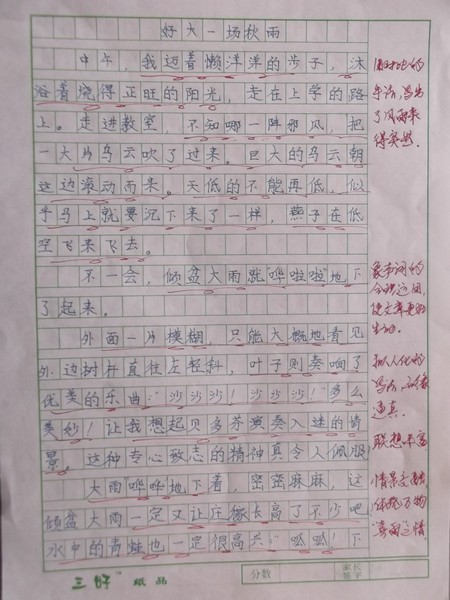 好大一场秋雨
中午，我迈着懒洋洋的步子，沐
浴着烧得正旺的阳光，走在上学的路
上。走进教室，不知哪一阵邪风，把
一大片乌云吹了过来。巨大的乌云朝
这边滚动而来。天低的不能再低，似
乎马上就要沉下来了一样，燕子在低
空飞来飞去。
不一会，倾盆大雨就“哗啦啦”地下
了起来。
外面一片模糊，只能大概地看见
外边树杆直往左轻斜，叶子则奏响了
优美的乐曲：“沙沙沙！沙沙沙！”多么
美妙！让我想起贝多芬演奏入迷的情
景。这种专心致志的精神真令人佩服
大雨哗哗地下着，密密麻麻，这
倾盆大雨一定又让庄稼长高了不少吧
水中的青蛙也一定很高兴：“呱呱！下
的
写法，写出
了风雨来
得突然。
象声词的
合理运用，
使文章更加
生动。
拟人化的
写法，
逼真。
联想丰富
情景交融
体现万物
喜雨之情
三好 纸品
分数
家长
签字